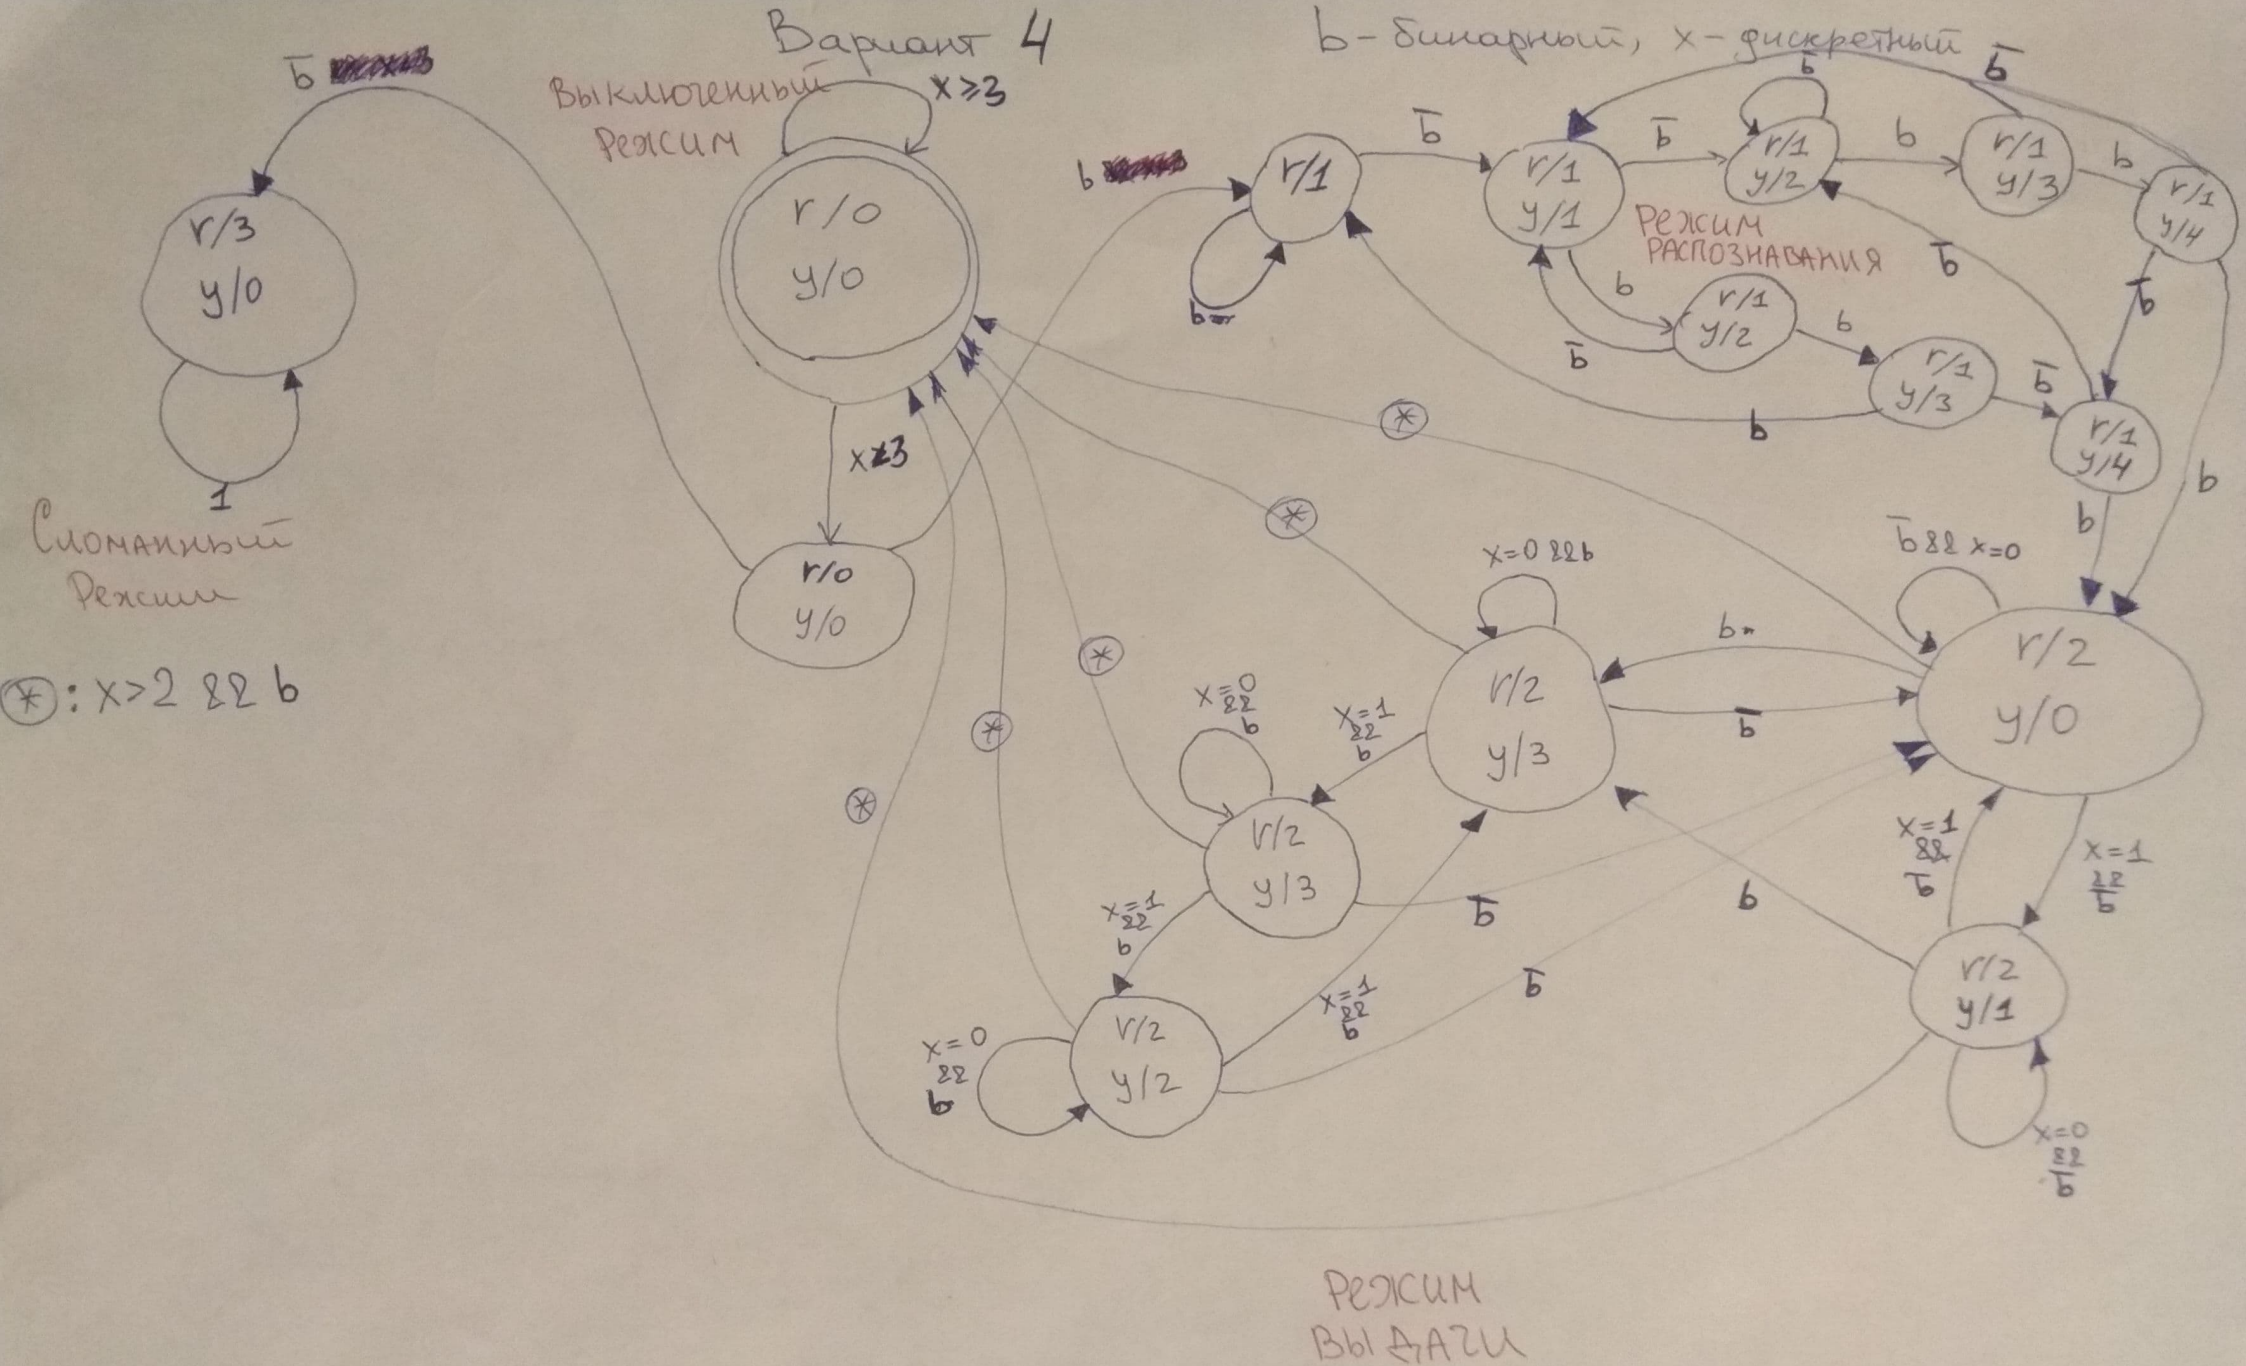 Вариант 4
b - бинарный, x - дискретный
b̅
Выключенный
Режим
x≥3
r/3
y/0
1
Сломанный
Режим
r/0
y/0
r/0
y/0
⊛: x>2 && b
b
r/1
b
b̅
r/1
y/1
b̅
r/1
y/2
b̅
b
r/1
y/3
b̅
b
r/1
y/4
Режим
распознавания
b
b̅
r/1
y/2
b
r/1
y/3
b̅
b
b̅
b̅
r/1
y/4
b
b
*
*
*
*
*
x=0 && b
b̅ && x=0
r/2
y/3
b
b̅
r/2
y/0
x=1
&&
b
x=0
&&
b
r/2
y/3
b̅
x=1
&&
b
r/2
y/2
x=0
&&
b
x=1
&&
b
b̅
b
x=1
&&
b̅
x=1
&&
b̅
r/2
y/1
x=0
&&
b̅
Режим
выдачи